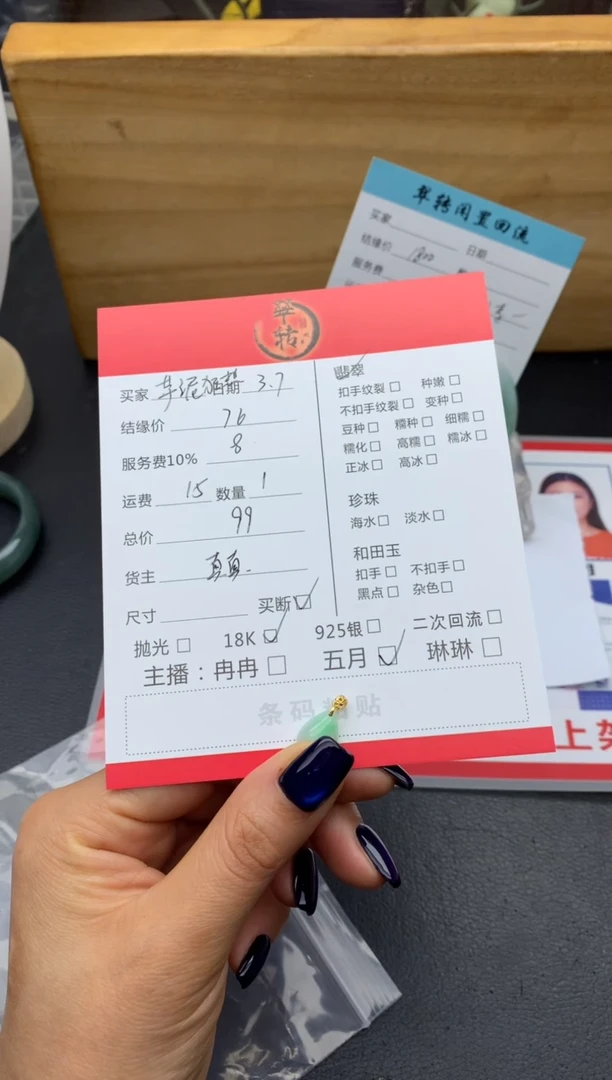 翠转闲置回流
买家 日期
结缘价 1800
服务费
翠转
买家 日期 3.7
结缘价 76
服务费10% 8
运费 15 数量 1
总价 99
货主 真真
尺寸 买断☑
抛光□ 18K☑ 925银□ 二次回流□
主播：冉冉□ 五月☑ 琳琳□
条码粘贴
翡翠
扣手纹裂□ 种嫩□
不扣手纹裂□ 变种□
豆种□ 糯种□ 细糯□
糯化□ 高糯□ 糯冰□
正冰□ 高冰□
珍珠
海水□ 淡水□
和田玉
扣手□ 不扣手□
黑点□ 杂色□
上架